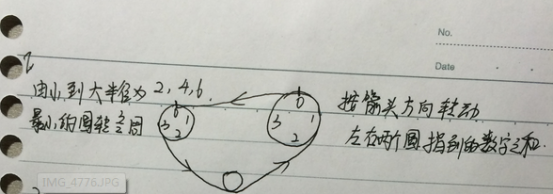 No.
Date
2
由小到大半径为2,4,6.
最小的圆转3周
按箭头方向转动
左右两个圆指到的数字之和.
0 1 2 3
0 1 2 3
IMG_4776.JPG